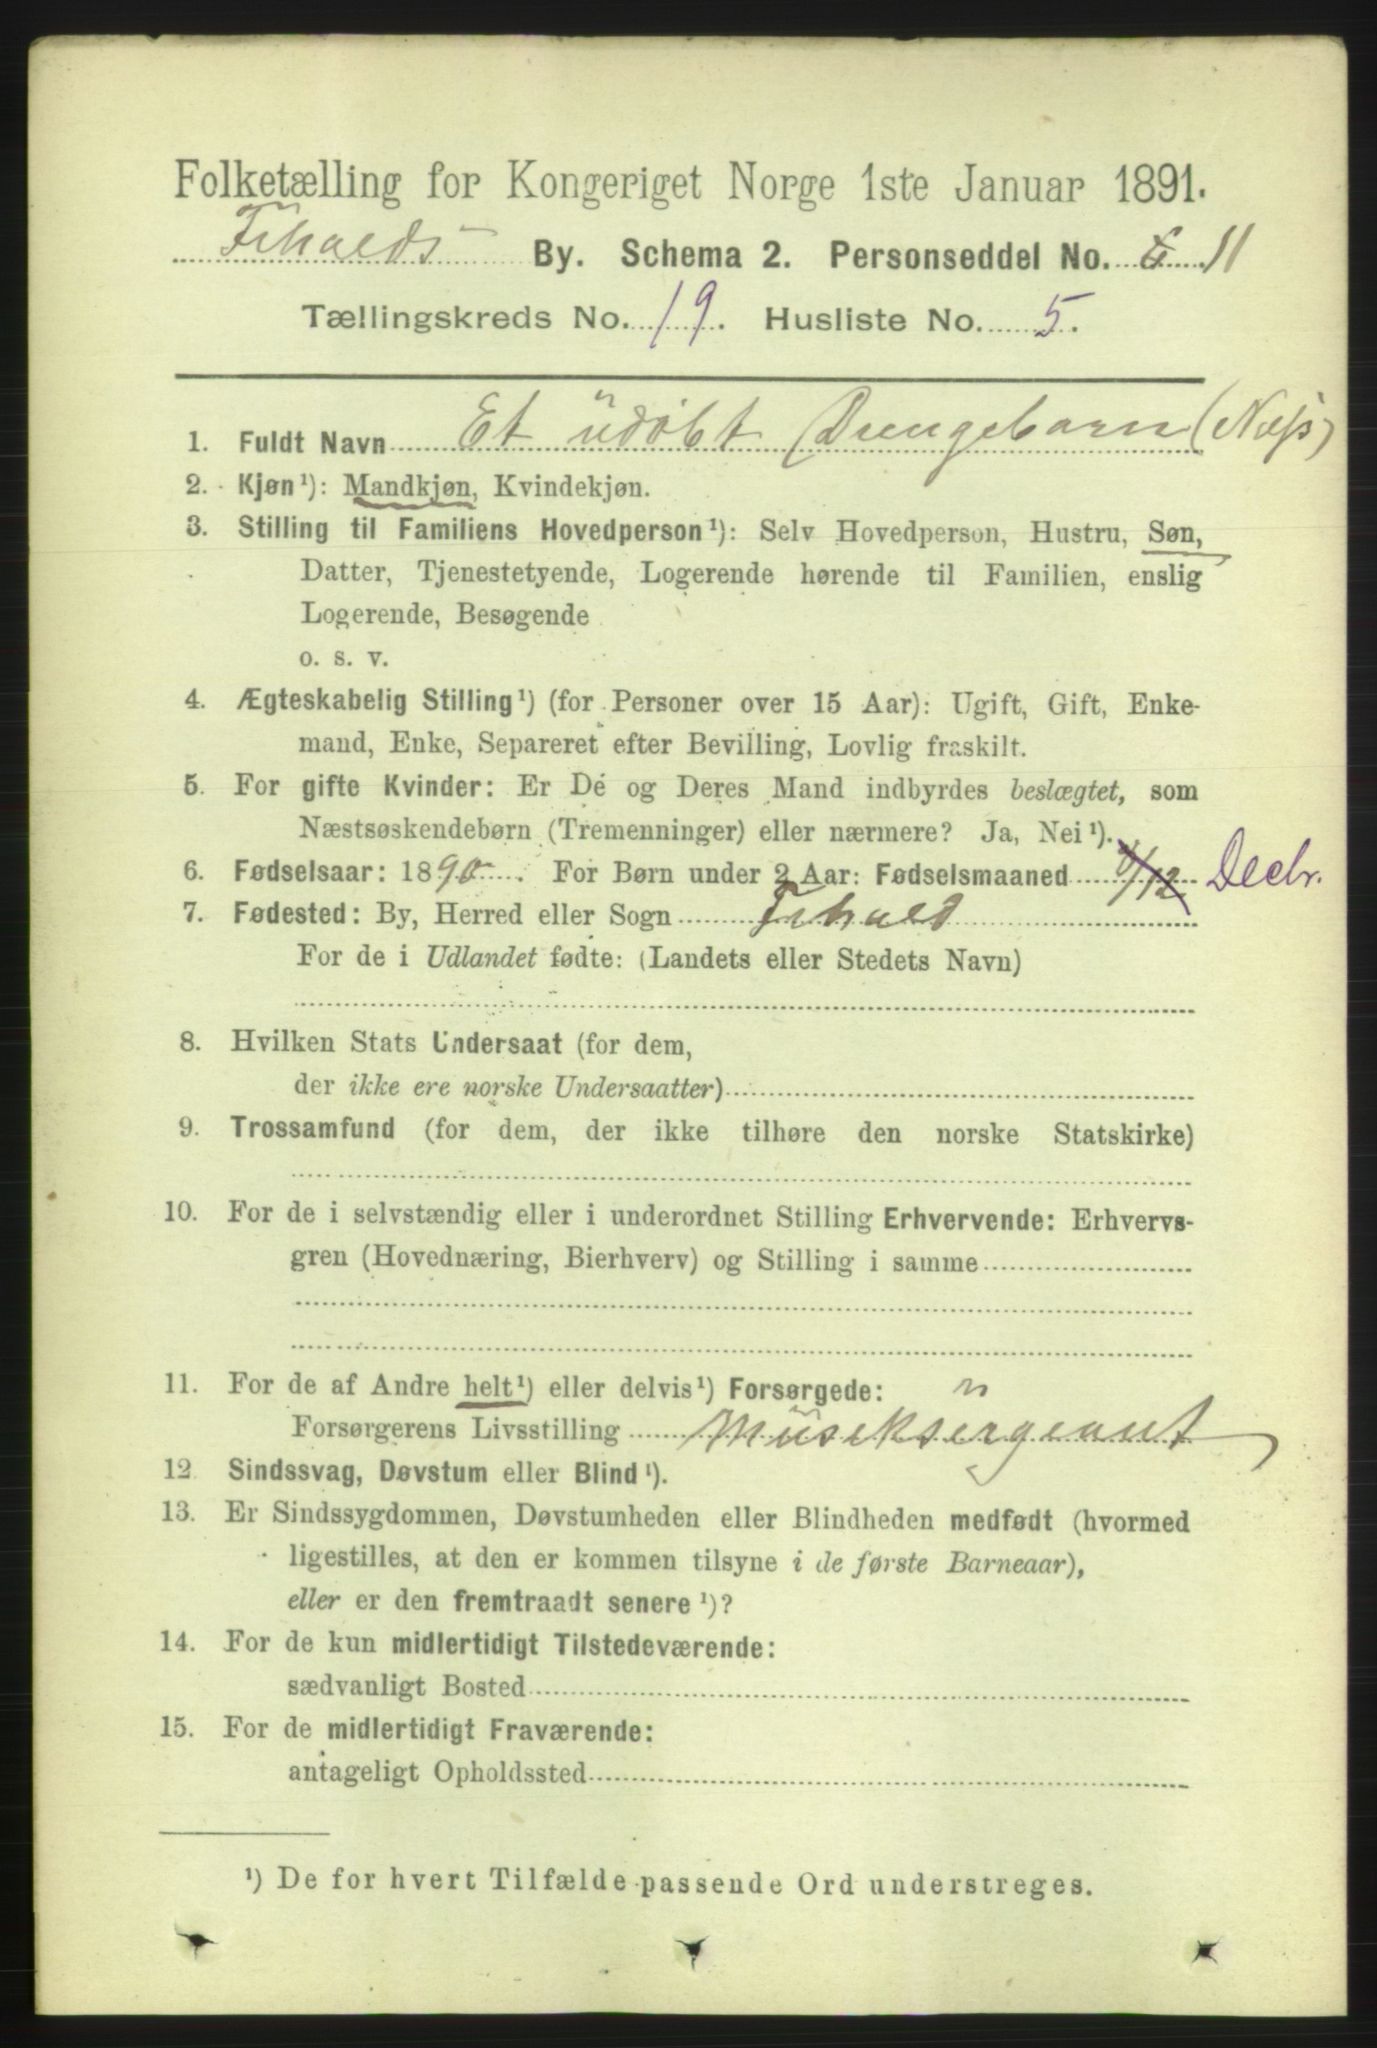 Folketælling for Kongeriget Norge 1ste Januar 1891.
Frhalds By. Schema 2. Personseddel No. 6 11
Tællingskreds No. 19. Husliste No. 5.
1. Fuldt Navn Et udøbt Drengebarn (Næss)
2. Kjøn¹): Mandkjøn, Kvindekjøn.
3. Stilling til Familiens Hovedperson¹): Selv Hovedperson, Hustru, Søn,
Datter, Tjenestetyende, Logerende hørende til Familien, enslig
Logerende, Besøgende
o. s. v.
4. Ægteskabelig Stilling¹) (for Personer over 15 Aar): Ugift, Gift, Enke-
mand, Enke, Separeret efter Bevilling, Lovlig fraskilt.
5. For gifte Kvinder: Er Dé og Deres Mand indbyrdes beslægtet, som
Næstsøskendebørn (Tremenninger) eller nærmere? Ja, Nei¹).
6. Fødselsaar: 1890. For Børn under 2 Aar: Fødselsmaaned /12 Decbr.
7. Fødested: By, Herred eller Sogn Frhald
For de i Udlandet fødte: (Landets eller Stedets Navn)
8. Hvilken Stats Undersaat (for dem,
der ikke ere norske Undersaatter)
9. Trossamfund (for dem, der ikke tilhøre den norske Statskirke)
10. For de i selvstændig eller i underordnet Stilling Erhvervende: Erhvervs-
gren (Hovednæring, Bierhverv) og Stilling i samme
11. For de af Andre helt¹) eller delvis¹) Forsørgede:
Forsørgerens Livsstilling Musiksergeant
12 Sindssvag, Døvstum eller Blind¹).
13. Er Sindssygdommen, Døvstumheden eller Blindheden medfødt (hvormed
ligestilles, at den er kommen tilsyne i de første Barneaar),
eller er den fremtraadt senere¹)?
14. For de kun midlertidigt Tilstedeværende:
sædvanligt Bosted
15. For de midlertidigt Fraværende:
antageligt Opholdssted
¹) De for hvert Tilfælde passende Ord understreges.